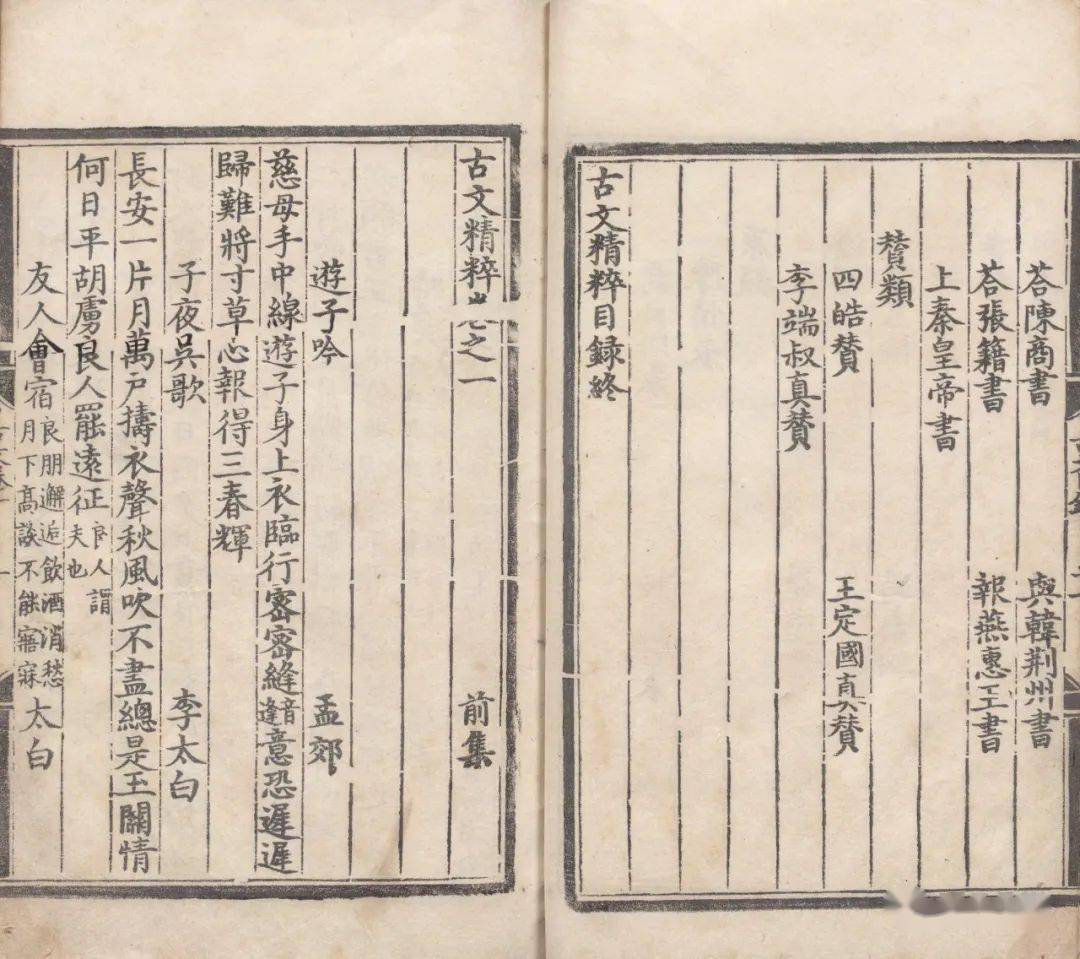 荅陳商書　與韓荆州書
荅張籍書　報燕惠王書
上秦皇帝書
賛類
四皓賛　王定國真賛
李端叔真賛
古文精粹目録終
古文精粹卷之一　前集
遊子吟　孟郊
慈母手中線遊子身上衣臨行密密縫音逢意恐遲遲
歸難將寸草心報得三春輝
子夜吳歌　李太白
長安一片月萬戶擣衣聲秋風吹不盡總是玉關情
何日平胡虜良人罷遠征良人謂夫也
友人會宿良朋邂逅飲酒消愁月下髙談不能寤寐太白